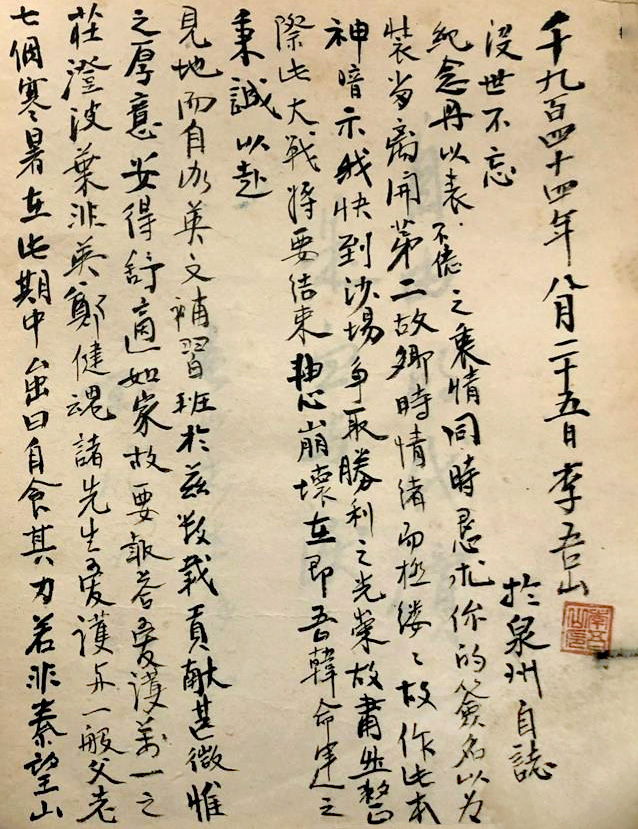 七個寒暑在此期中虽曰自食其力若非秦望山
莊澄波葉非英鄭健魂諸先生愛護与一般父老
之厚意安得舒適如家故要報荅愛護萬一之
見地而自办英文補習班於兹数載貢献甚微惟
秉誠以赴
際此大戰将要结束軸心崩壞在即吾韓命運之
神暗示我快到沙場争取勝利之光榮故肅然整
裝当离開第二故鄉時情绪而極缕々故作此本
紀念册以表不倦之衷情同時恳求你的簽名以为
没世不忘
千九百四十四年八月二十五日李吾山
於泉州自誌